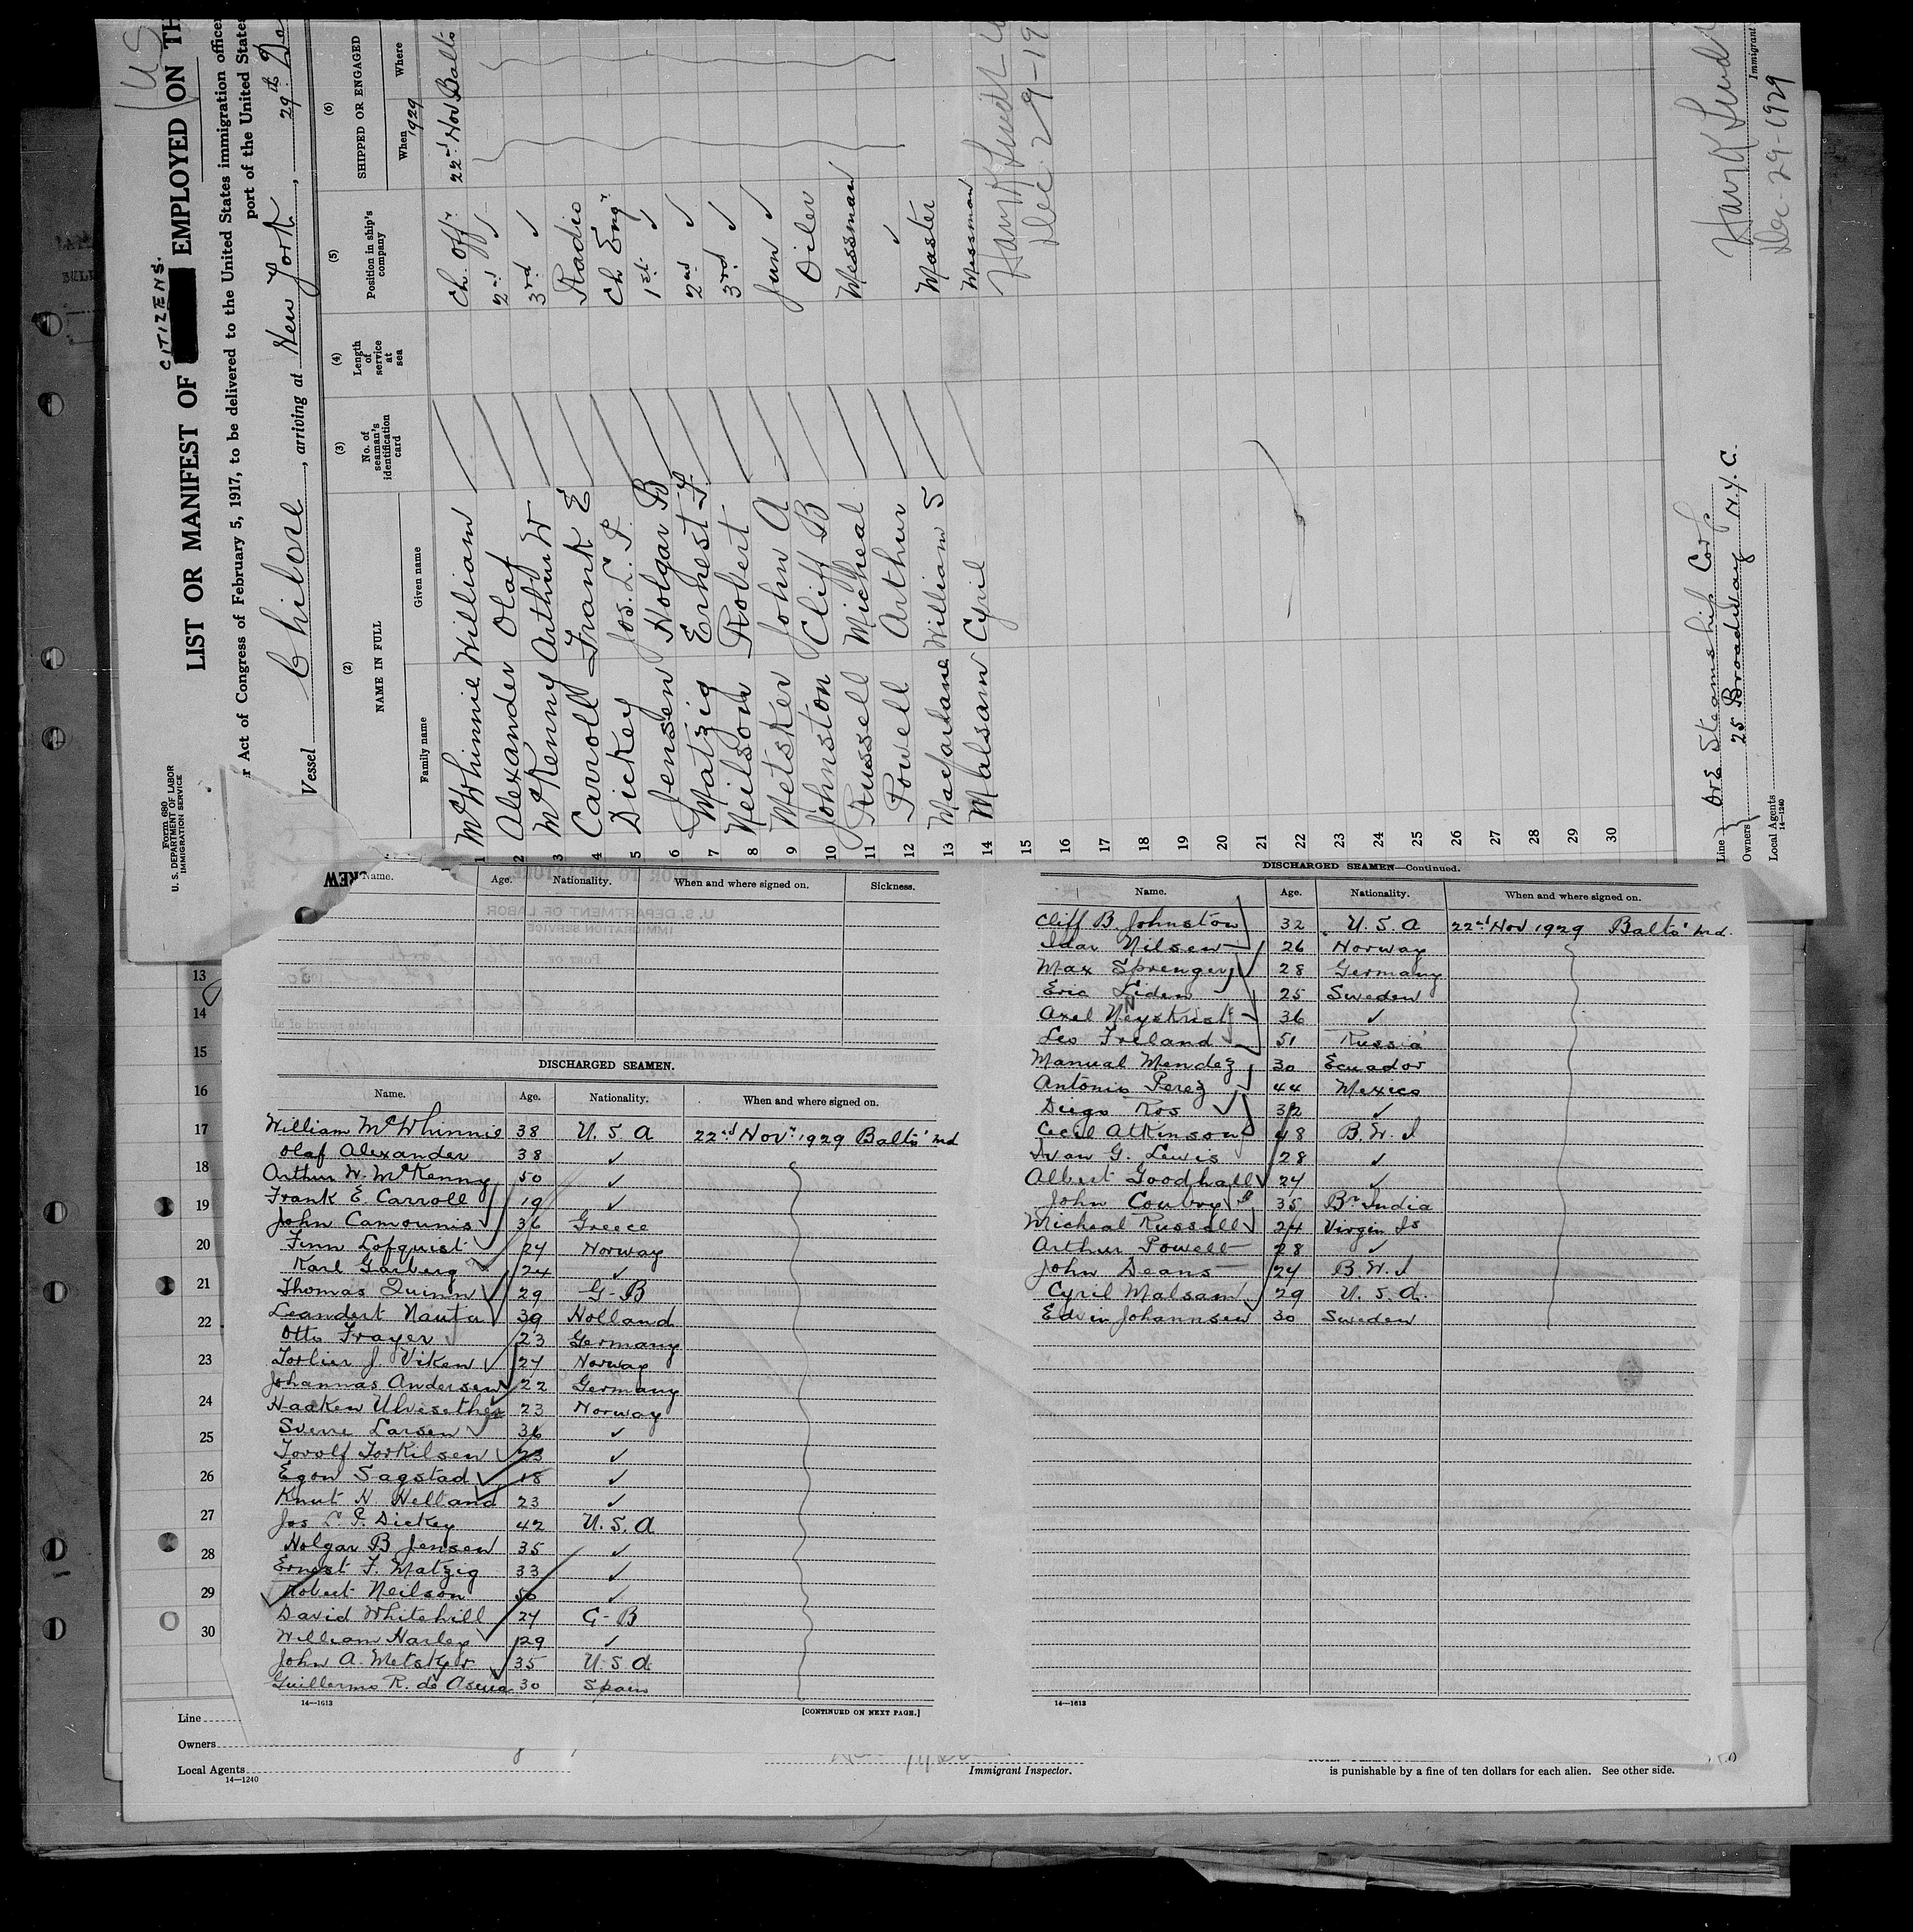 Form 680
U. S. DEPARTMENT OF LABOR
IMMIGRATION SERVICE
U S
CITIZENS.
LIST OR MANIFEST OF EMPLOYED ON TH
r Act of Congress of February 5, 1917, to be delivered to the United States immigration officer
port of the United State
Vessel Chilore, arriving at New York, 29th De
(2) (3) (4) (5) (6)
NAME IN FULL No. of seaman's identification card Length of service at sea Position in ship's company SHIPPED OR ENGAGED
Family name Given name When Where
1929
1 McWhinnie William Ch. Offr 22nd Nov Balto
2 Alexander Olaf 2nd ✓
3 McKenny Arthur W 3rd ✓
4 Carroll Frank E Radio
5 Dickey Jos. L. P. Ch Engr
6 Jensen Holgar B 1st ✓
7 Matzig Ernest F. 2nd ✓
8 Neilson Robert 3rd ✓
9 Metsker John A Jun ✓
10 Johnston Cliff B Oiler
11 Russell Micheal Messman
12 Powell Arthur ✓
13 Macfarlane William S Master
14 Malsam Cyril Messman
15
16
17
18
19
20
21
22
23
24
25
26
27
28
29
30
Dec. 29-19
Line Ore Steamship Corp.
Owners 25 Broadway N.Y.C.
Local Agents
14—1240
Immigrant
Dec-29-1929
CREW
Name. Age. Nationality. When and where signed on. Sickness.
DISCHARGED SEAMEN.
Name. Age. Nationality. When and where signed on.
William McWhinnie 38 U. S. A 22nd Novr 1929 Balto' Md
Olaf Alexander 38 ✓
Arthur W. McKenny 50 ✓
Frank E. Carroll 19 ✓
John Camounis 36 Greece
Finn Lofquist 24 Norway
Karl Garberg 24 ✓
Thomas Quinn 29 G-B
Leandert Nauta 39 Holland
Otto Frayer 23 Germany
Torlier J. Viken 24 Norway
Johannas Andersen 22 Germany
Haaken Ulvisether 23 Norway
Sverre Larsen 36 ✓
Tovolf Torkilsen 23 ✓
Egon Sagstad 18 ✓
Knut N. Helland 23 ✓
Jos L. P. Dickey 42 U. S. A
Holgar B Jensen 35 ✓
Ernest F. Matzig 33 ✓
Robert Neilson 50 ✓
David Whitehill 24 G-B
William Harley 29 ✓
John A. Metsker 35 U. S. A.
Guillermo R. de 30 Spain
14—1613
[CONTINUED ON NEXT PAGE.]
DISCHARGED SEAMEN—Continued.
Name. Age. Nationality. When and where signed on.
Cliff B. Johnston 32 U. S. A 22nd Nov 1929 Balto' Md.
Idar Nilsen 26 Norway
Max Sprenger 28 Germany
Eric Liden 25 Sweden
Axel Neyskrist 36 ✓
Leo Freland 51 Russia
Manual Mendez 30 Ecuador
Antonio Perez 44 Mexico
Diego Ros 32 ✓
Cecil Atkinson 48 B. W. I
Ivan G. Lewis 28 ✓
Albert Goodhall 24 ✓
John Cowboy 35 Br India
Micheal Russell 24 Virgin Is
Arthur Powell 28 ✓
John Deans 24 B. W. I
Cyril Malsam 29 U. S. A.
Edvin Johannsen 30 Sweden
14—1613
13
14
15
16
17
18
19
20
21
22
23
24
25
26
27
28
29
30
Line
Owners
Local Agents
14—1240
Immigrant Inspector.
is punishable by a fine of ten dollars for each alien. See other side.